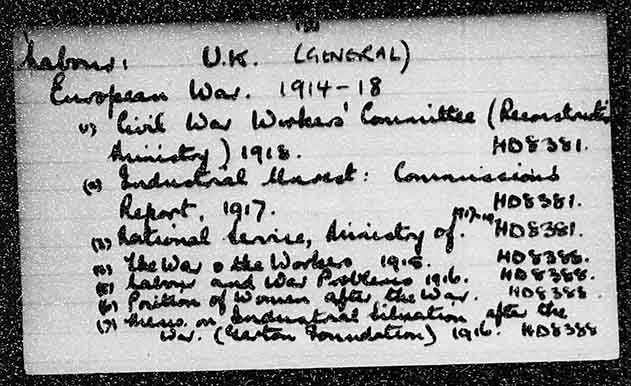 Labour: U.K. (GENERAL)
European War. 1914-18
(1) Civil War Workers' Committee (Reconstruction
Ministry) 1918. HD8381.
(2) Industrial Unrest: Commissions
Report, 1917. HD8381.
(3) National Service, Ministry of. 1917-19 HD8381.
(4) The War & the Workers 1915. HD8388.
(5) Labour and War Problems 1916. HD8388.
(6) Position of Women after the War. HD8388
(7) Memo. on Industrial Situation after the
War. (Garton Foundation) 1916. HD8388